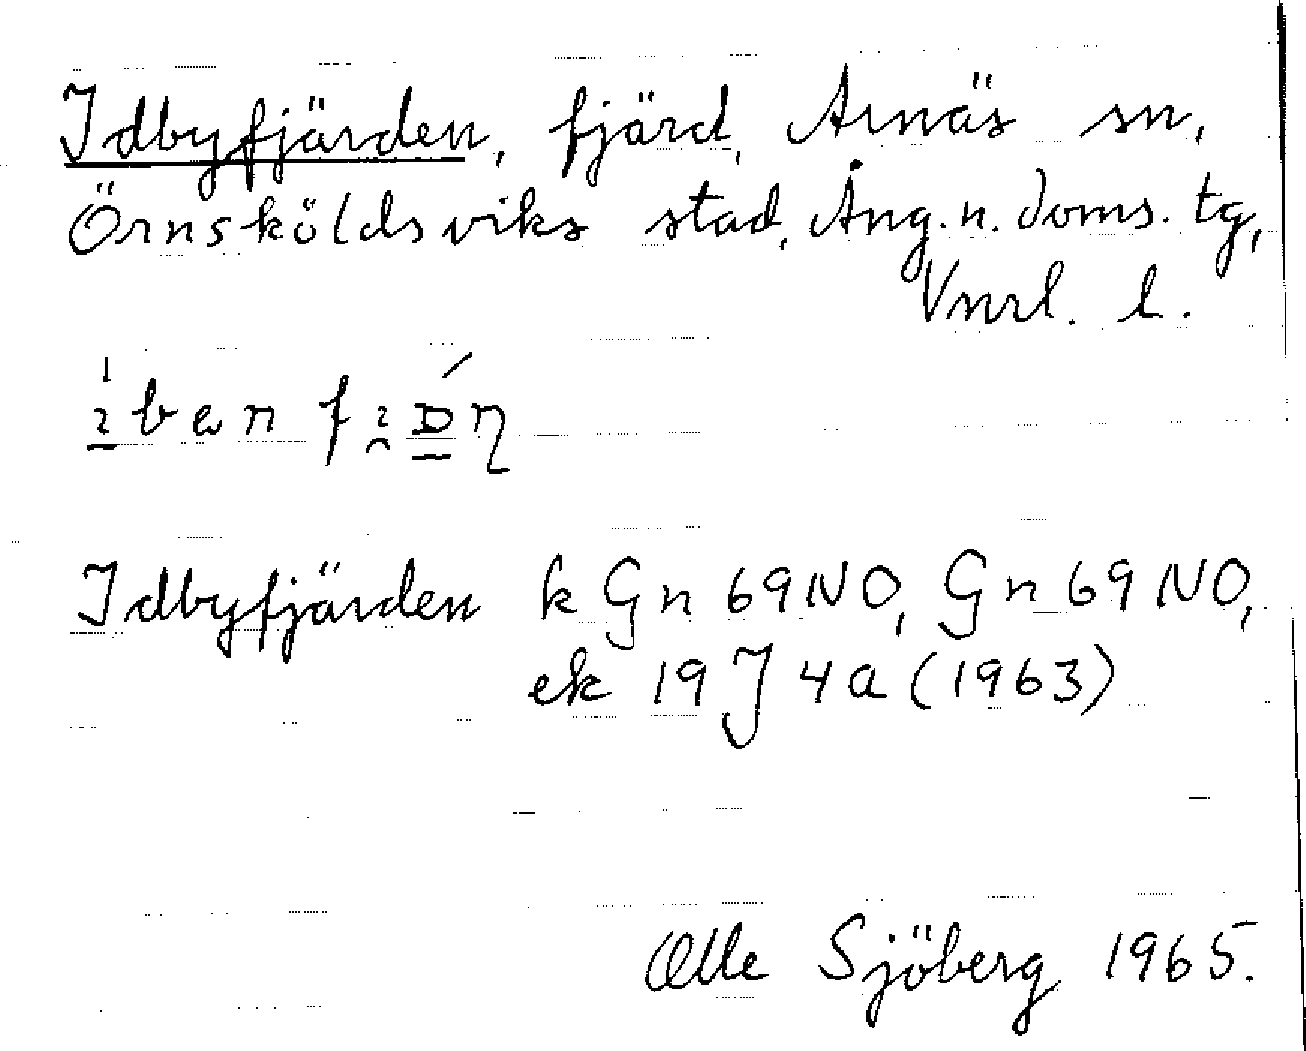 Idbyfjärden, fjärd, Arnäs sn,
Örnsköldsviks stad, Ång. n. doms. tg,
Vnrl. l.
Idbyfjärden k Gn 69 NO, Gn 69 NO,
ek 19 J 4 a (1963)
Olle Sjöberg 1965.